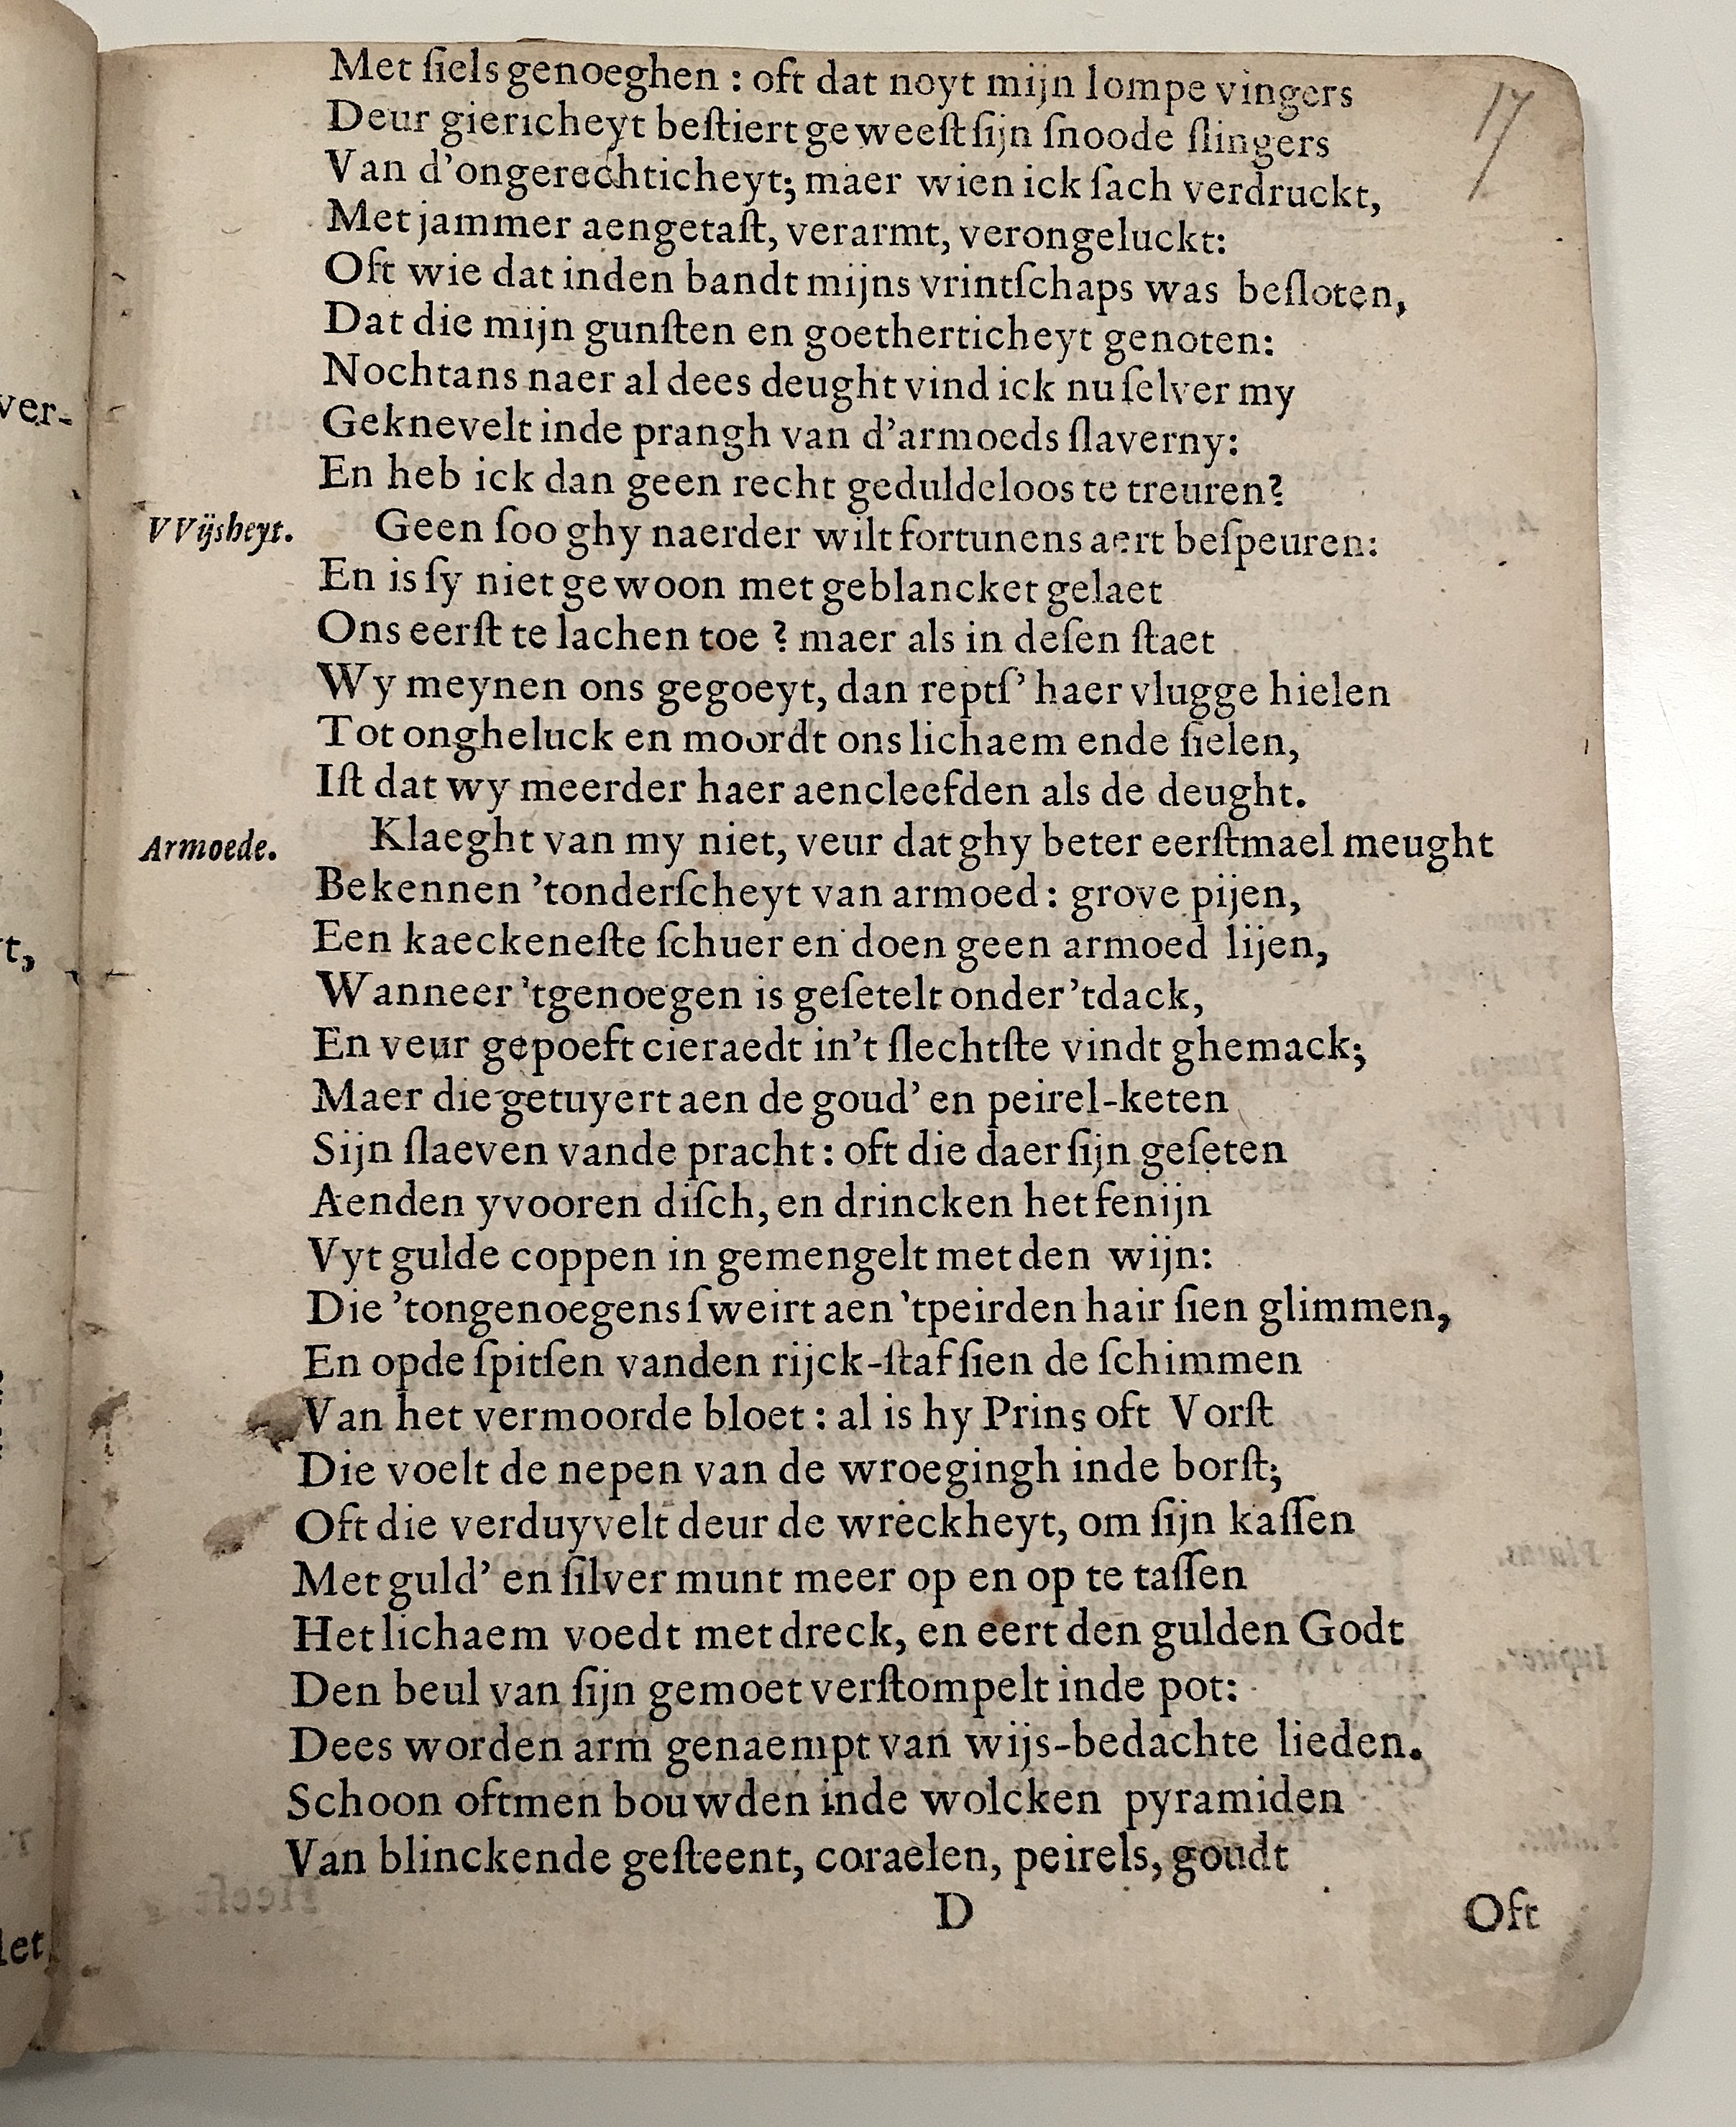 17
Met ſiels genoeghen : oft dat noyt mijn lompe vingers
Deur giericheyt beſtiert geweeſt ſijn ſnoode ſlingers
Van d'ongerechticheyt; maer wien ick ſach verdruckt,
Met jammer aengetaſt, verarmt, verongeluckt:
Oft wie dat inden bandt mijns vrintſchaps was beſloten,
Dat die mijn gunſten en goetherticheyt genoten:
Nochtans naer al dees deught vind ick nu ſelver my
Geknevelt inde prangh van d'armoeds ſlaverny:
En heb ick dan geen recht geduldeloos te treuren?
VVijsheyt. Geen ſoo ghy naerder wilt fortunens aert beſpeuren:
En is ſy niet gewoon met geblancket gelaet
Ons eerſt te lachen toe ? maer als in deſen ſtaet
Wy meynen ons gegoeyt, dan reptſ' haer vlugge hielen
Tot ongheluck en moordt ons lichaem ende ſielen,
Iſt dat wy meerder haer aencleefden als de deught.
Armoede. Klaeght van my niet, veur dat ghy beter eerſtmael meught
Bekennen 'tonderſcheyt van armoed : grove pijen,
Een kaeckeneſte ſchuer en doen geen armoed lijen,
Wanneer 'tgenoegen is geſetelt onder 'tdack,
En veur gepoeft cieraedt in't ſlechtſte vindt ghemack;
Maer die getuyert aen de goud' en peirel-keten
Sijn ſlaeven vande pracht : oft die daer ſijn geſeten
Aenden yvooren diſch, en drincken het fenijn
Vyt gulde coppen in gemengelt met den wijn:
Die 'tongenoegens ſweirt aen 'tpeirden hair ſien glimmen,
En opde ſpitſen vanden rijck-ſtaf ſien de ſchimmen
Van het vermoorde bloet : al is hy Prins oft Vorſt
Die voelt de nepen van de wroegingh inde borſt;
Oft die verduyvelt deur de wreckheyt, om ſijn kaſſen
Met guld' en ſilver munt meer op en op te taſſen
Het lichaem voedt met dreck, en eert den gulden Godt
Den beul van ſijn gemoet verſtompelt inde pot:
Dees worden arm genaempt van wijs-bedachte lieden.
Schoon oftmen bouwden inde wolcken pyramiden
Van blinckende geſteent, coraelen, peirels, goudt
D Oft